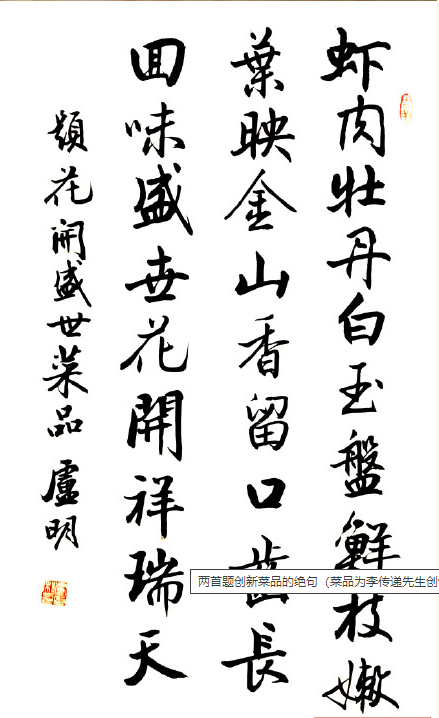 虾肉牡丹白玉盤鮮枝嫩
葉映金山香留口齒長
回味盛世花開祥瑞天
題花開盛世菜品 盧明
两首题创新菜品的绝句（菜品为李传递先生创